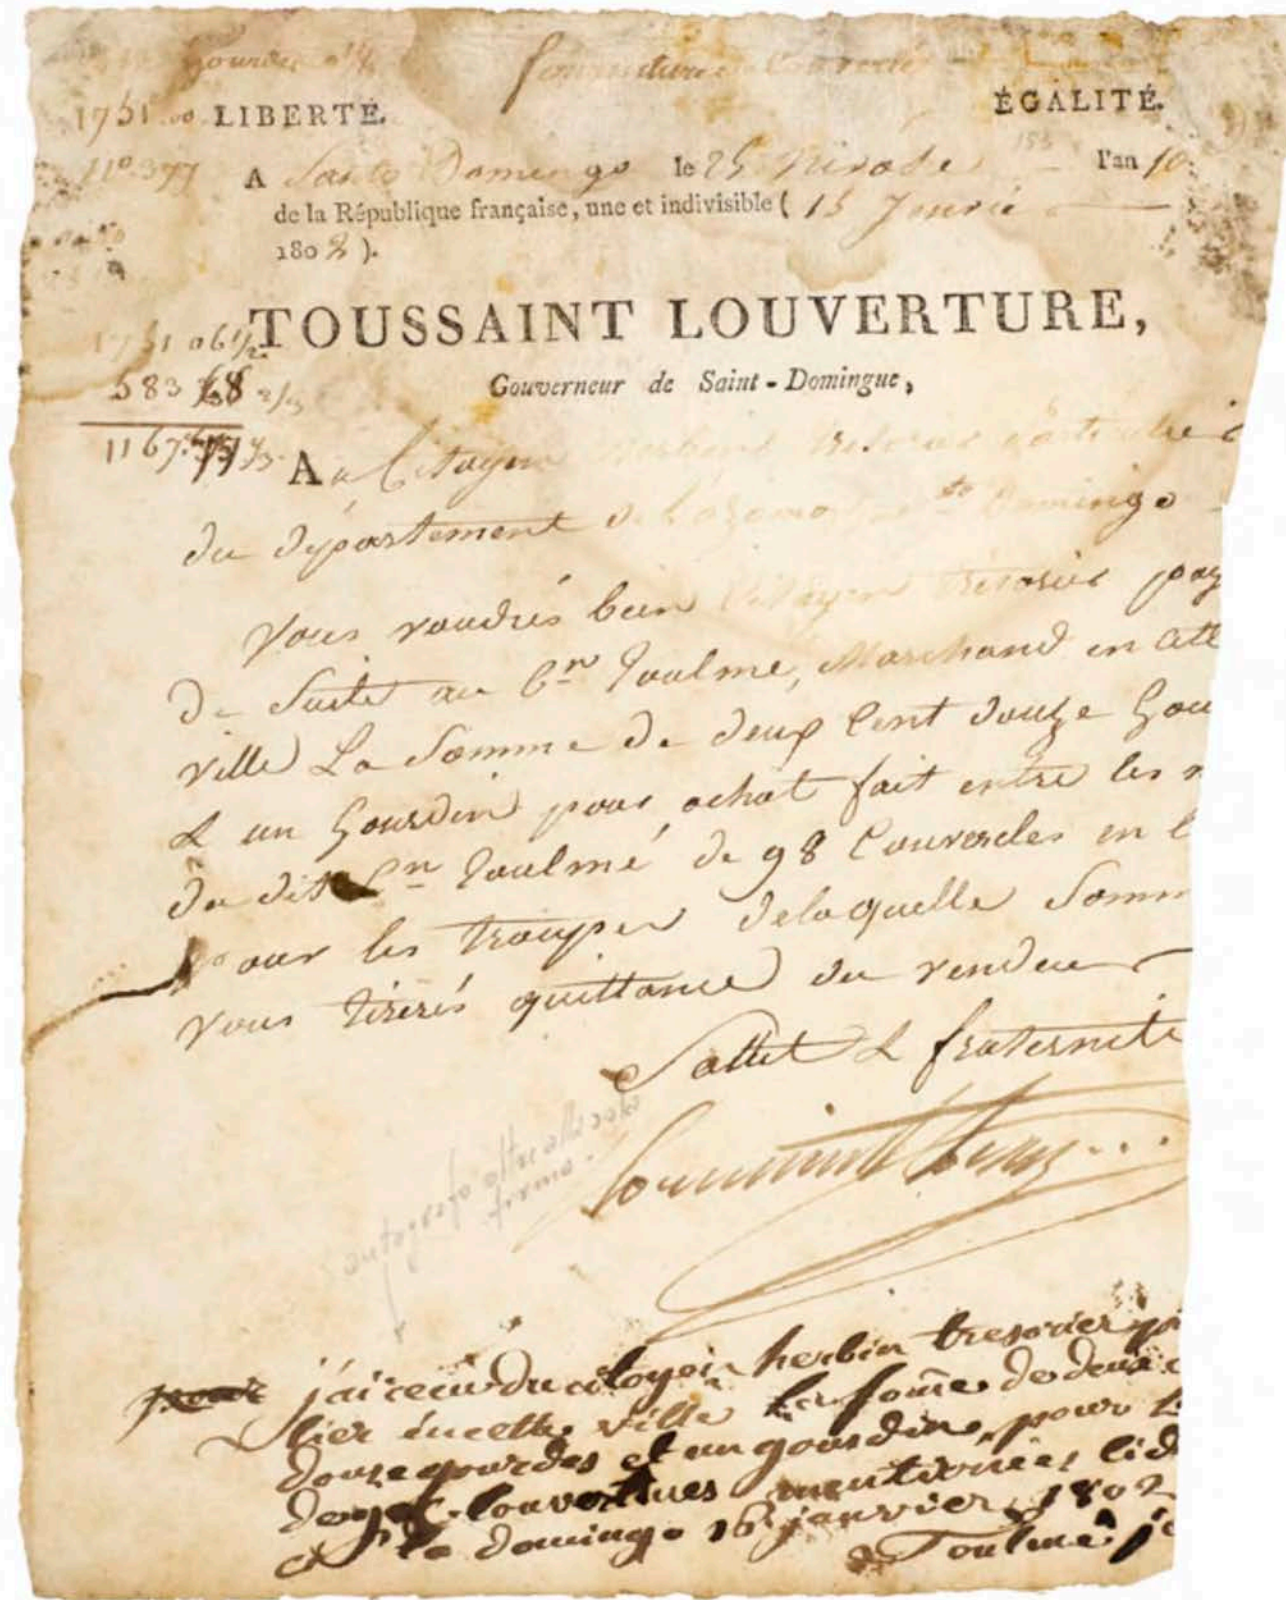 gourdes
fournitures
1751 00 LIBERTÉ. ÉGALITÉ.
110.377 A Santo Domingo le 25 Nivose l'an 10
de la République française, une et indivisible ( 15 Janvié
1802 ).
TOUSSAINT LOUVERTURE,
1751 06 1/2
Gouverneur de Saint-Domingue,
583 68
1167.
Au Citoyen trésorier particulier
du département de Sto Domingo
Vous voudrés bien Citoyen trésorier pay
De Suite au Cen Toulmé, Marchand en cett
ville La Somme De deux Cent douze Gou
& un Gourdin pour achat fait entre les
du dit Cen Toulmé de 98 Couvertes en l
pour les troupes delaquelle Somm
vous tirerés quittance du vendeur
Sallut & fraternité
Toussaint Louverture
autografo oltre alla sola
firma.
pour j'ai reçu du citoyen herbin tresorier par
lier en cette ville la some de deux c
douze gourdes et un gourdin, pour
de couvertures mentionées
Sto domingo 16 janvier 1802
Toulmé je